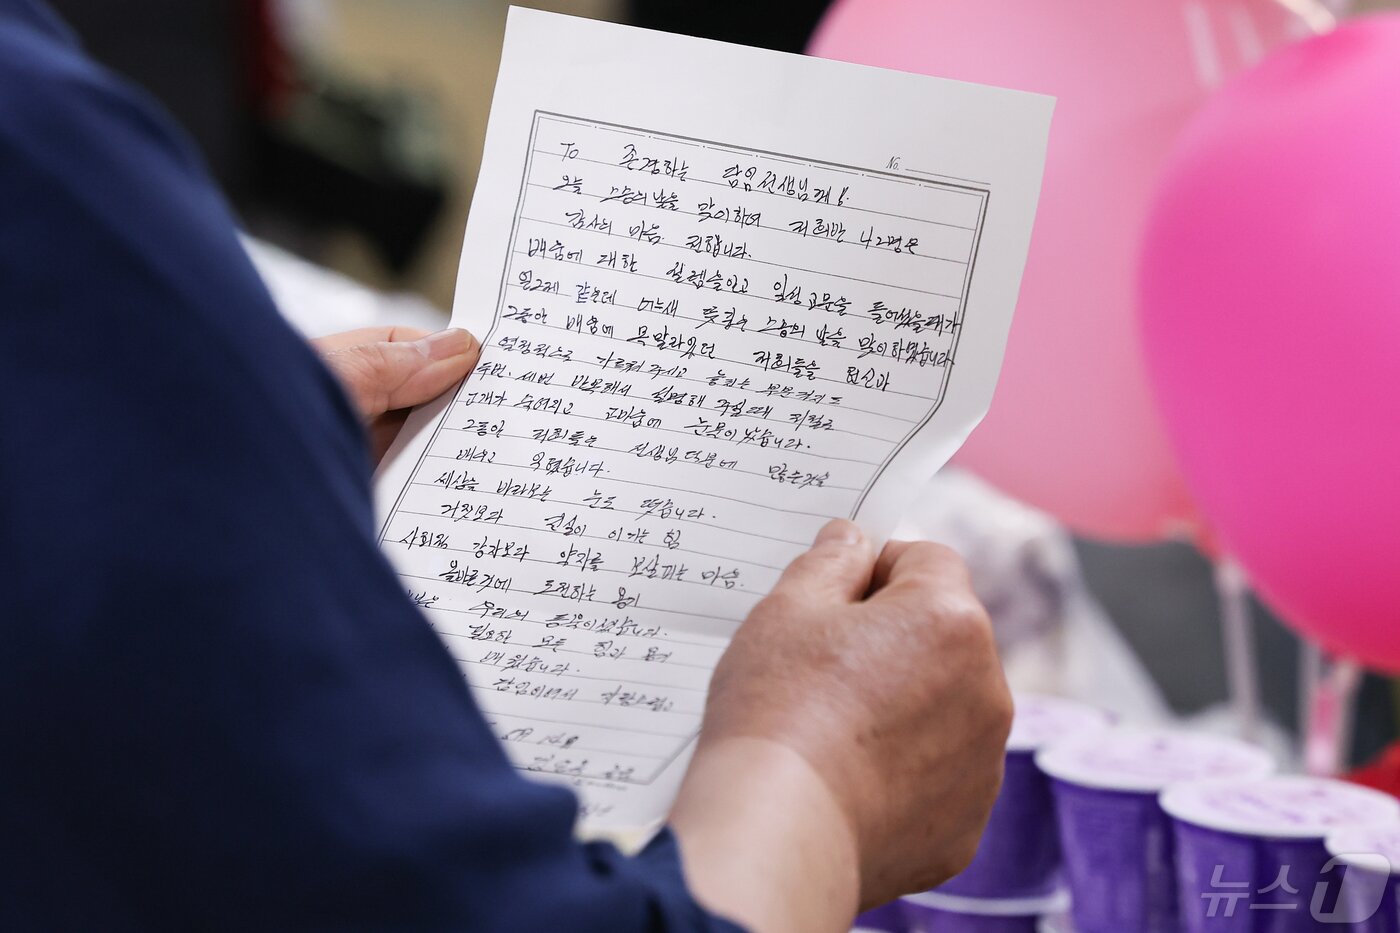 No.
To 존경하는 담임선생님께!
오늘 스승의날을 맞이하여 저희반 42명은
감사의 마음 전합니다.
배움에 대한 설렘을안고 일성교문을 들어섰을때가
엊그제 같은데 어느새 뜻깊은 스승의 날을 맞이하였습니다.
그동안 배움에 목말라있던 저희들을 헌신과
열정적으로 가르쳐 주시고
두번. 세번 반복해서 설명해 주실때 저절로
고개가 숙여지고 고마움에 눈물이났습니다.
그동안 저희들은 선생님덕분에 많은것을
배우고 익혔습니다.
세상을 바라보는 눈도 떴습니다.
거짓보다 진실이 이기는 힘
사회적 강자보다 약자를 보살피는 마음.
올바른것에 도전하는 용기
우리의 등목이셨습니다.
필요한 모든 힘과 용기
배웠습니다.
담임이여서 자랑스럽고
5月 14日
뉴스1